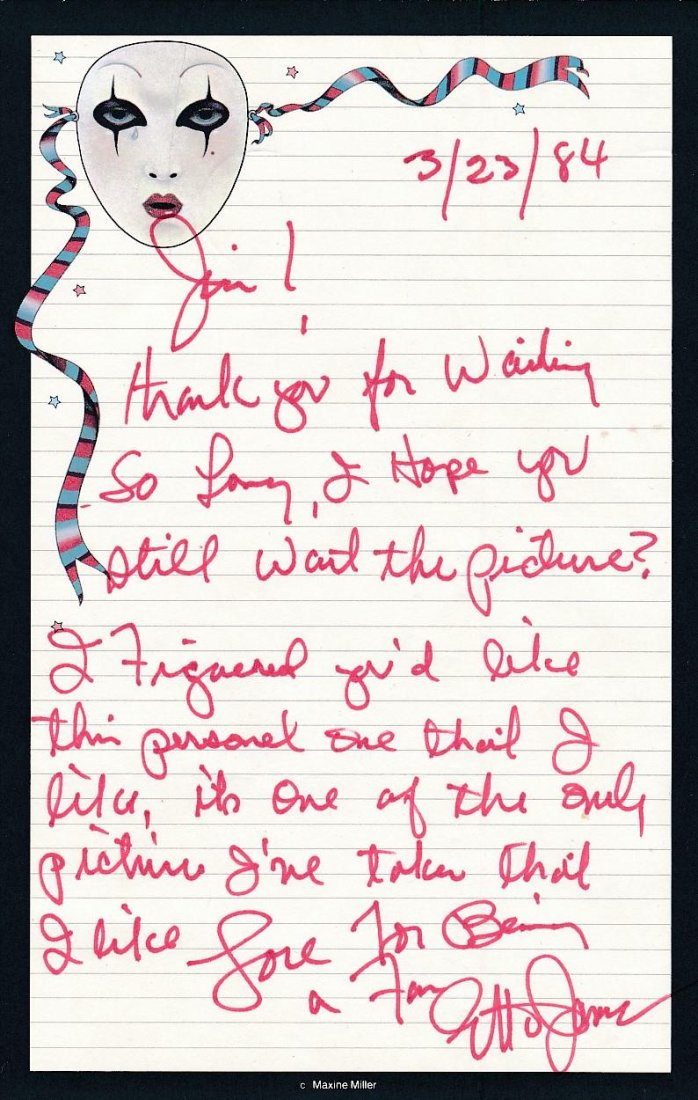 3/23/84
Jim!
Thank you for Waiting
So Long, I Hope you
still want the picture?
I Figuered you'd like
this personel one that I
like, its one of the only
picture I've taken that
I like Love For Being
a Fan Etta James
c Maxine Miller